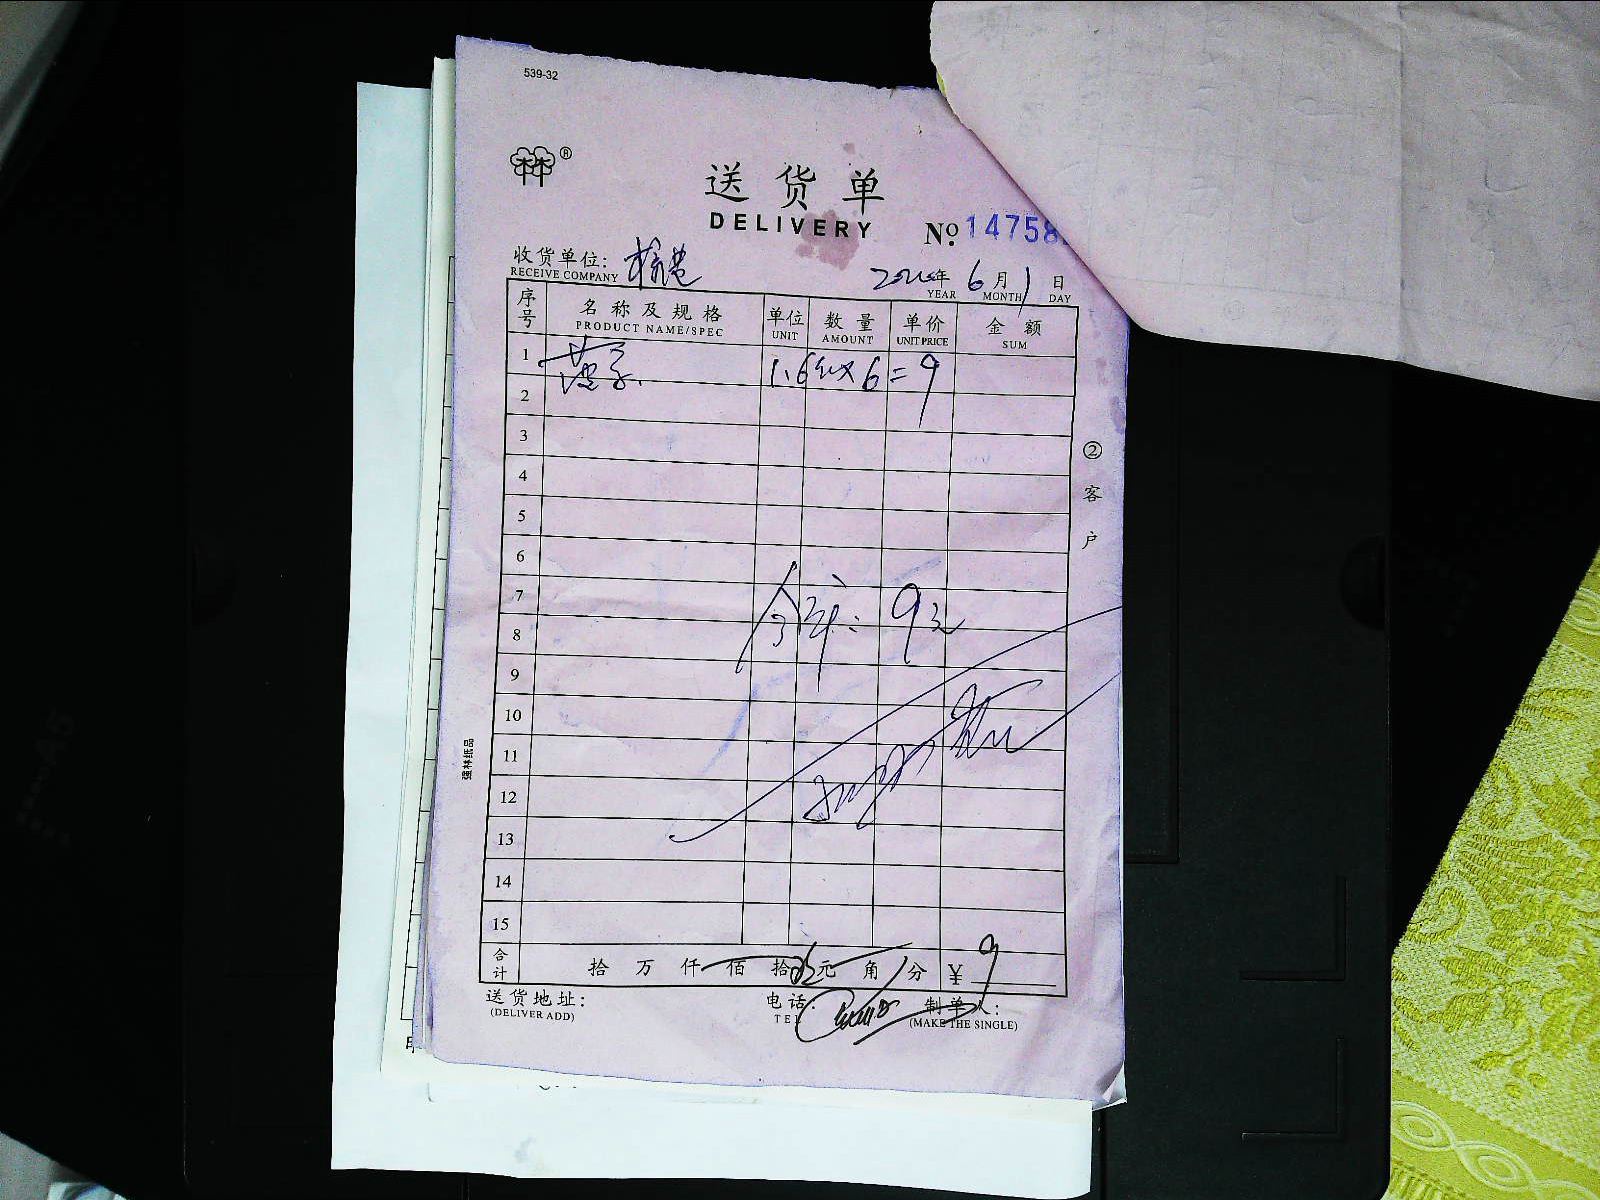 539-32
林®
送货单
DELIVERY
№ 14758
收货单位:
RECEIVE COMPANY
年 6 月 1 日
YEAR MONTH DAY
序号 名称及规格 单位 数量 单价 金额
PRODUCT NAME/SPEC UNIT AMOUNT UNIT PRICE SUM
1 1.6 × 6 = 9
2
3
4
5
6
7
8
9
10
11
12
13
14
15
9元
② 客户
强林纸品
合计 拾 万 仟 佰 拾 元 角 分 ¥ 9
送货地址: 电话: 制单人:
(DELIVER ADD) TEL (MAKE THE SINGLE)